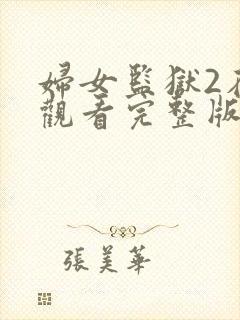 婦女監獄2在
觀看完整版
張美華